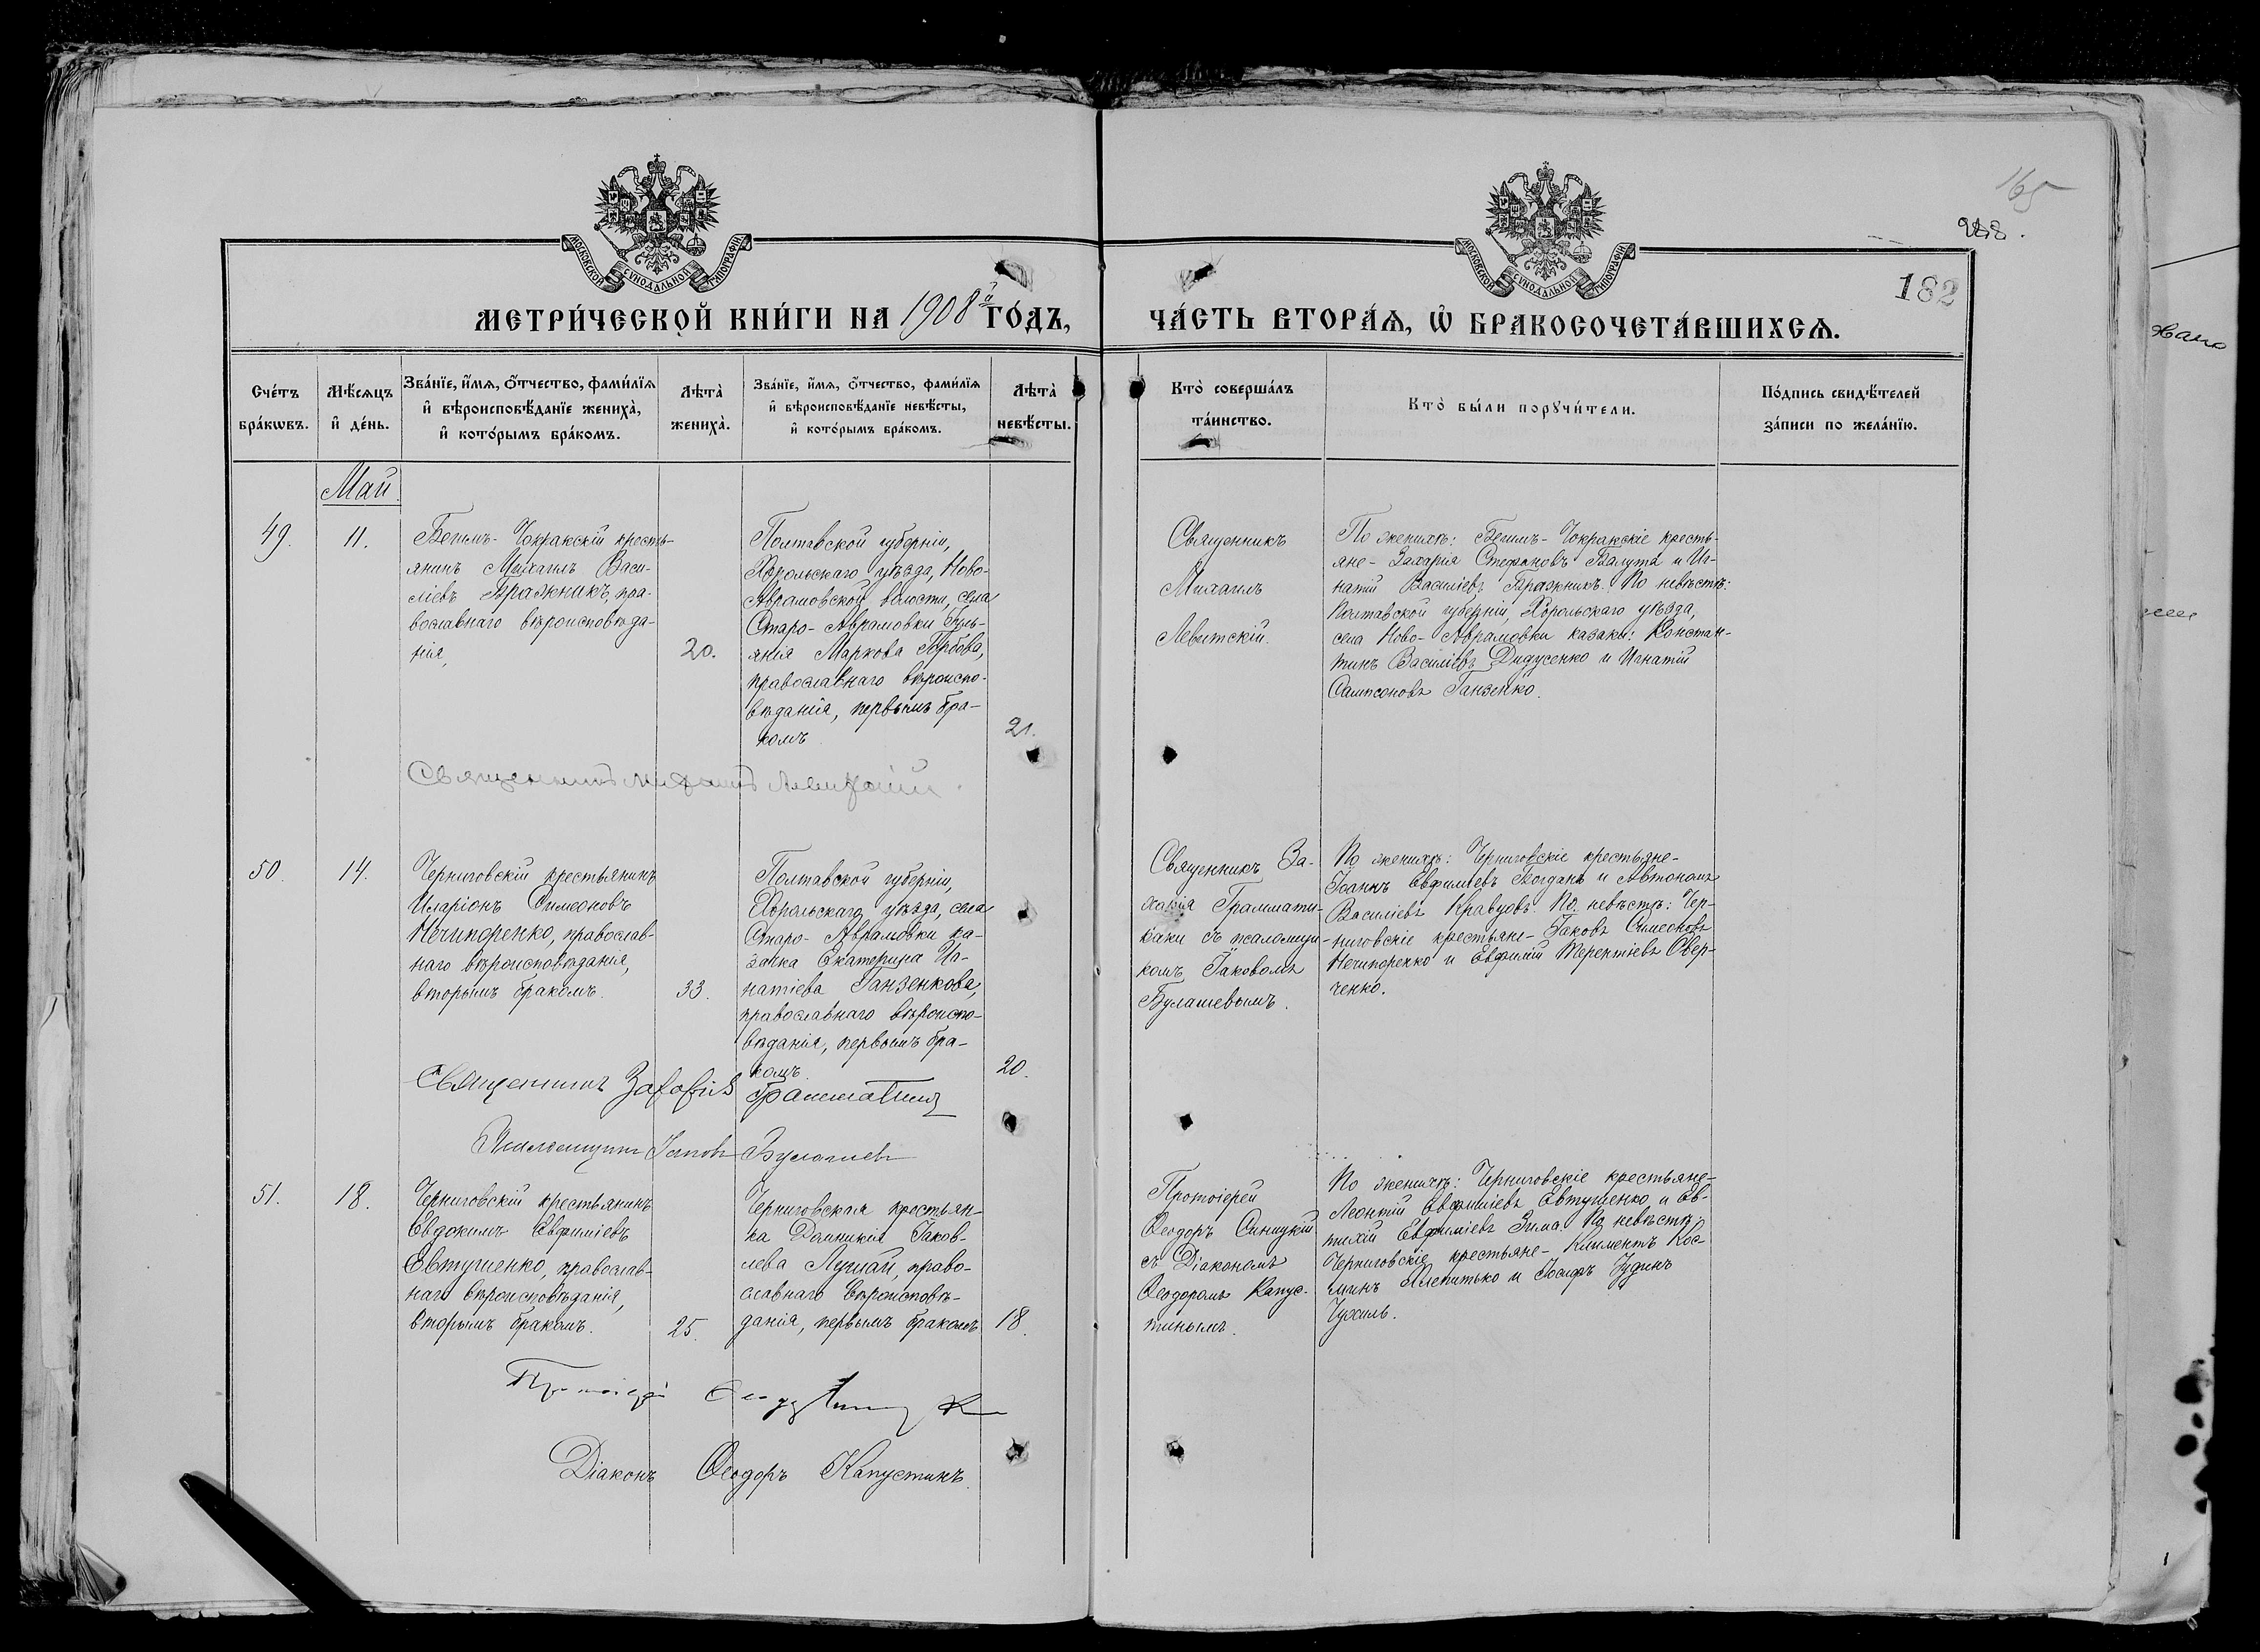 165
182
МОСКОВСКОЙ СѴНОДАЛЬНОЙ ТИПОГРАФІИ
МОСКОВСКОЙ СѴНОДАЛЬНОЙ ТИПОГРАФІИ
МЕТРИ́ЧЕСКОЙ КНИ́ГИ НА 1908й ГО́ДЪ,
ЧА́СТЬ ВТОРА́Ѧ, Ѡ҆ БРАКОСОЧЕТА́ВШИХСѦ.
Сче́тъ
бра́кѡвъ.
Мѣ́сѧцъ
и҆ де́нь.
Зва́нїе, и҆́мѧ, ѻ҆́тчество, фами́лїѧ
и҆ вѣроисповѣ́данїе жениха̀,
и҆ кото́рымъ бра́комъ.
Лѣта̀
жениха̀.
Зва́нїе, и҆́мѧ, ѻ҆́тчество, фами́лїѧ
и҆ вѣроисповѣ́данїе невѣ́сты,
и҆ кото́рымъ бра́комъ.
Лѣта̀
невѣ́сты.
Кто̀ соверша́лъ
та́инство.
Кто̀ бы́ли порꙋчи́тели.
По́дпись свидѣ́телей
за́писи по жела́нїю.
Май.
49.
11.
Бегимъ-Чокракскій кресть-
янинъ Михаилъ Васи-
ліевъ Бражникъ, пра-
вославнаго вѣроисповѣда-
нія,
20.
Полтавской губерніи,
Хорольскаго уѣзда, Ново-
Аврамовской волости, села
Старо-Аврамовки Гуль-
янія Маркова Горбова,
православнаго вѣроиспо-
вѣданія, первымъ бра-
комъ
21.
Священникъ
Михаилъ
Левитскій.
По женихѣ: Бегимъ-Чокракскіе кресть-
яне - Захарія Стефановъ Балута и Иг-
натій Василіевъ Бражникъ. По невѣстѣ:
Полтавской губерніи, Хорольскаго уѣзда,
села Ново-Аврамовки казаки: Констан-
тинъ Василіевъ Дидусенко и Игнатій
Сампсоновъ Ганзенко.
Священникъ Михаилъ Левитскій.
50.
14.
Черниговскій крестьянинъ
Иларіонъ Симеоновъ
Нечипоренко, православ-
наго вѣроисповѣданія,
вторымъ бракомъ.
33.
Полтавской губерніи,
Хорольскаго уѣзда, села
Старо-Аврамовки ка-
зачка Екатерина Иг-
натіева Ганзенкова,
православнаго вѣроиспо-
вѣданія, первымъ бра-
комъ.
20.
Священникъ За-
харія Граммати-
каки съ псаломщи-
комъ Іаковомъ
Булашевымъ.
По женихѣ: Черниговскіе крестьяне-
Іоаннъ Евфиміевъ Богданъ и Автономъ
Василіевъ Кравцовъ. По невѣстѣ: Чер-
ниговскіе крестьяне - Іаковъ Симеоновъ
Нечипоренко и Евфимій Терентіевъ Овер-
ченко.
Священникъ Захарія
Псаломщикъ Іаковъ Булашевъ
51.
18.
Черниговскій крестьянинъ
Евдокимъ Евфиміевъ
Евтушенко, православ-
наго вѣроисповѣданія,
вторымъ бракомъ.
25.
Черниговская крестьян-
ка Домникія Іаков-
лева Лушай, право-
славнаго вѣроисповѣ-
данія, первымъ бракомъ
18.
Протоіерей
Ѳеодоръ Синицкій
съ Діакономъ
Ѳеодоромъ Капус-
тинымъ.
По женихѣ: Черниговскіе крестьяне-
Леонтій Евфиміевъ Евтушенко и Ев-
тихій Евфиміевъ Зима. По невѣстѣ:
Черниговскіе крестьяне - Климентъ Кос-
минъ Слепитько и Іосифъ Іудинъ
Чухиль.
Протоіерей
Діаконъ Ѳеодоръ Капустинъ.